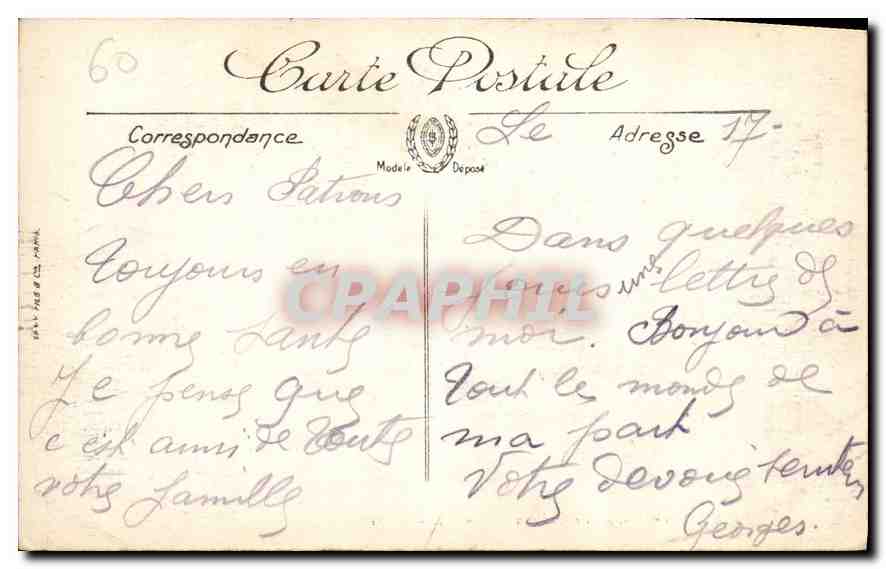 60
Carte Postale
Correspondance
Modèle Déposé
Adresse
Le 17-
Chers Patrons
Toujours en
bonne santé
Je pense que
c'est ainsi de toute
votre famille
Dans quelques
jours une lettre de
moi. Bonjour à
tout le monde de
ma part
Votre dévoué
Georges.
CPAPHIL